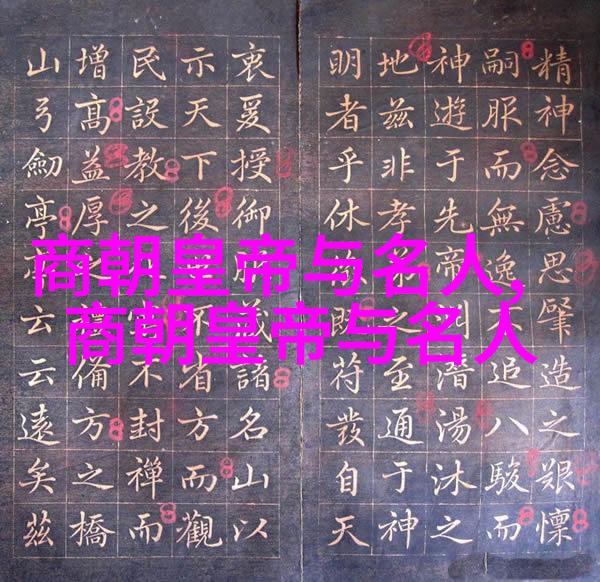 商朝皇帝与名人,
商朝皇帝与名人
精神念慮思肇造之艱懍
嗣服而無逸不追八駿而
神遊于先帝潛湯沐之
地茲非孝之至通于神
明者乎休既符發自天
衷爰授御藏諸名山以
示天下後不省方而觀
民設教之不封禪而
增高益厚之備方之橋
山弓劍亭云云遠矣茲